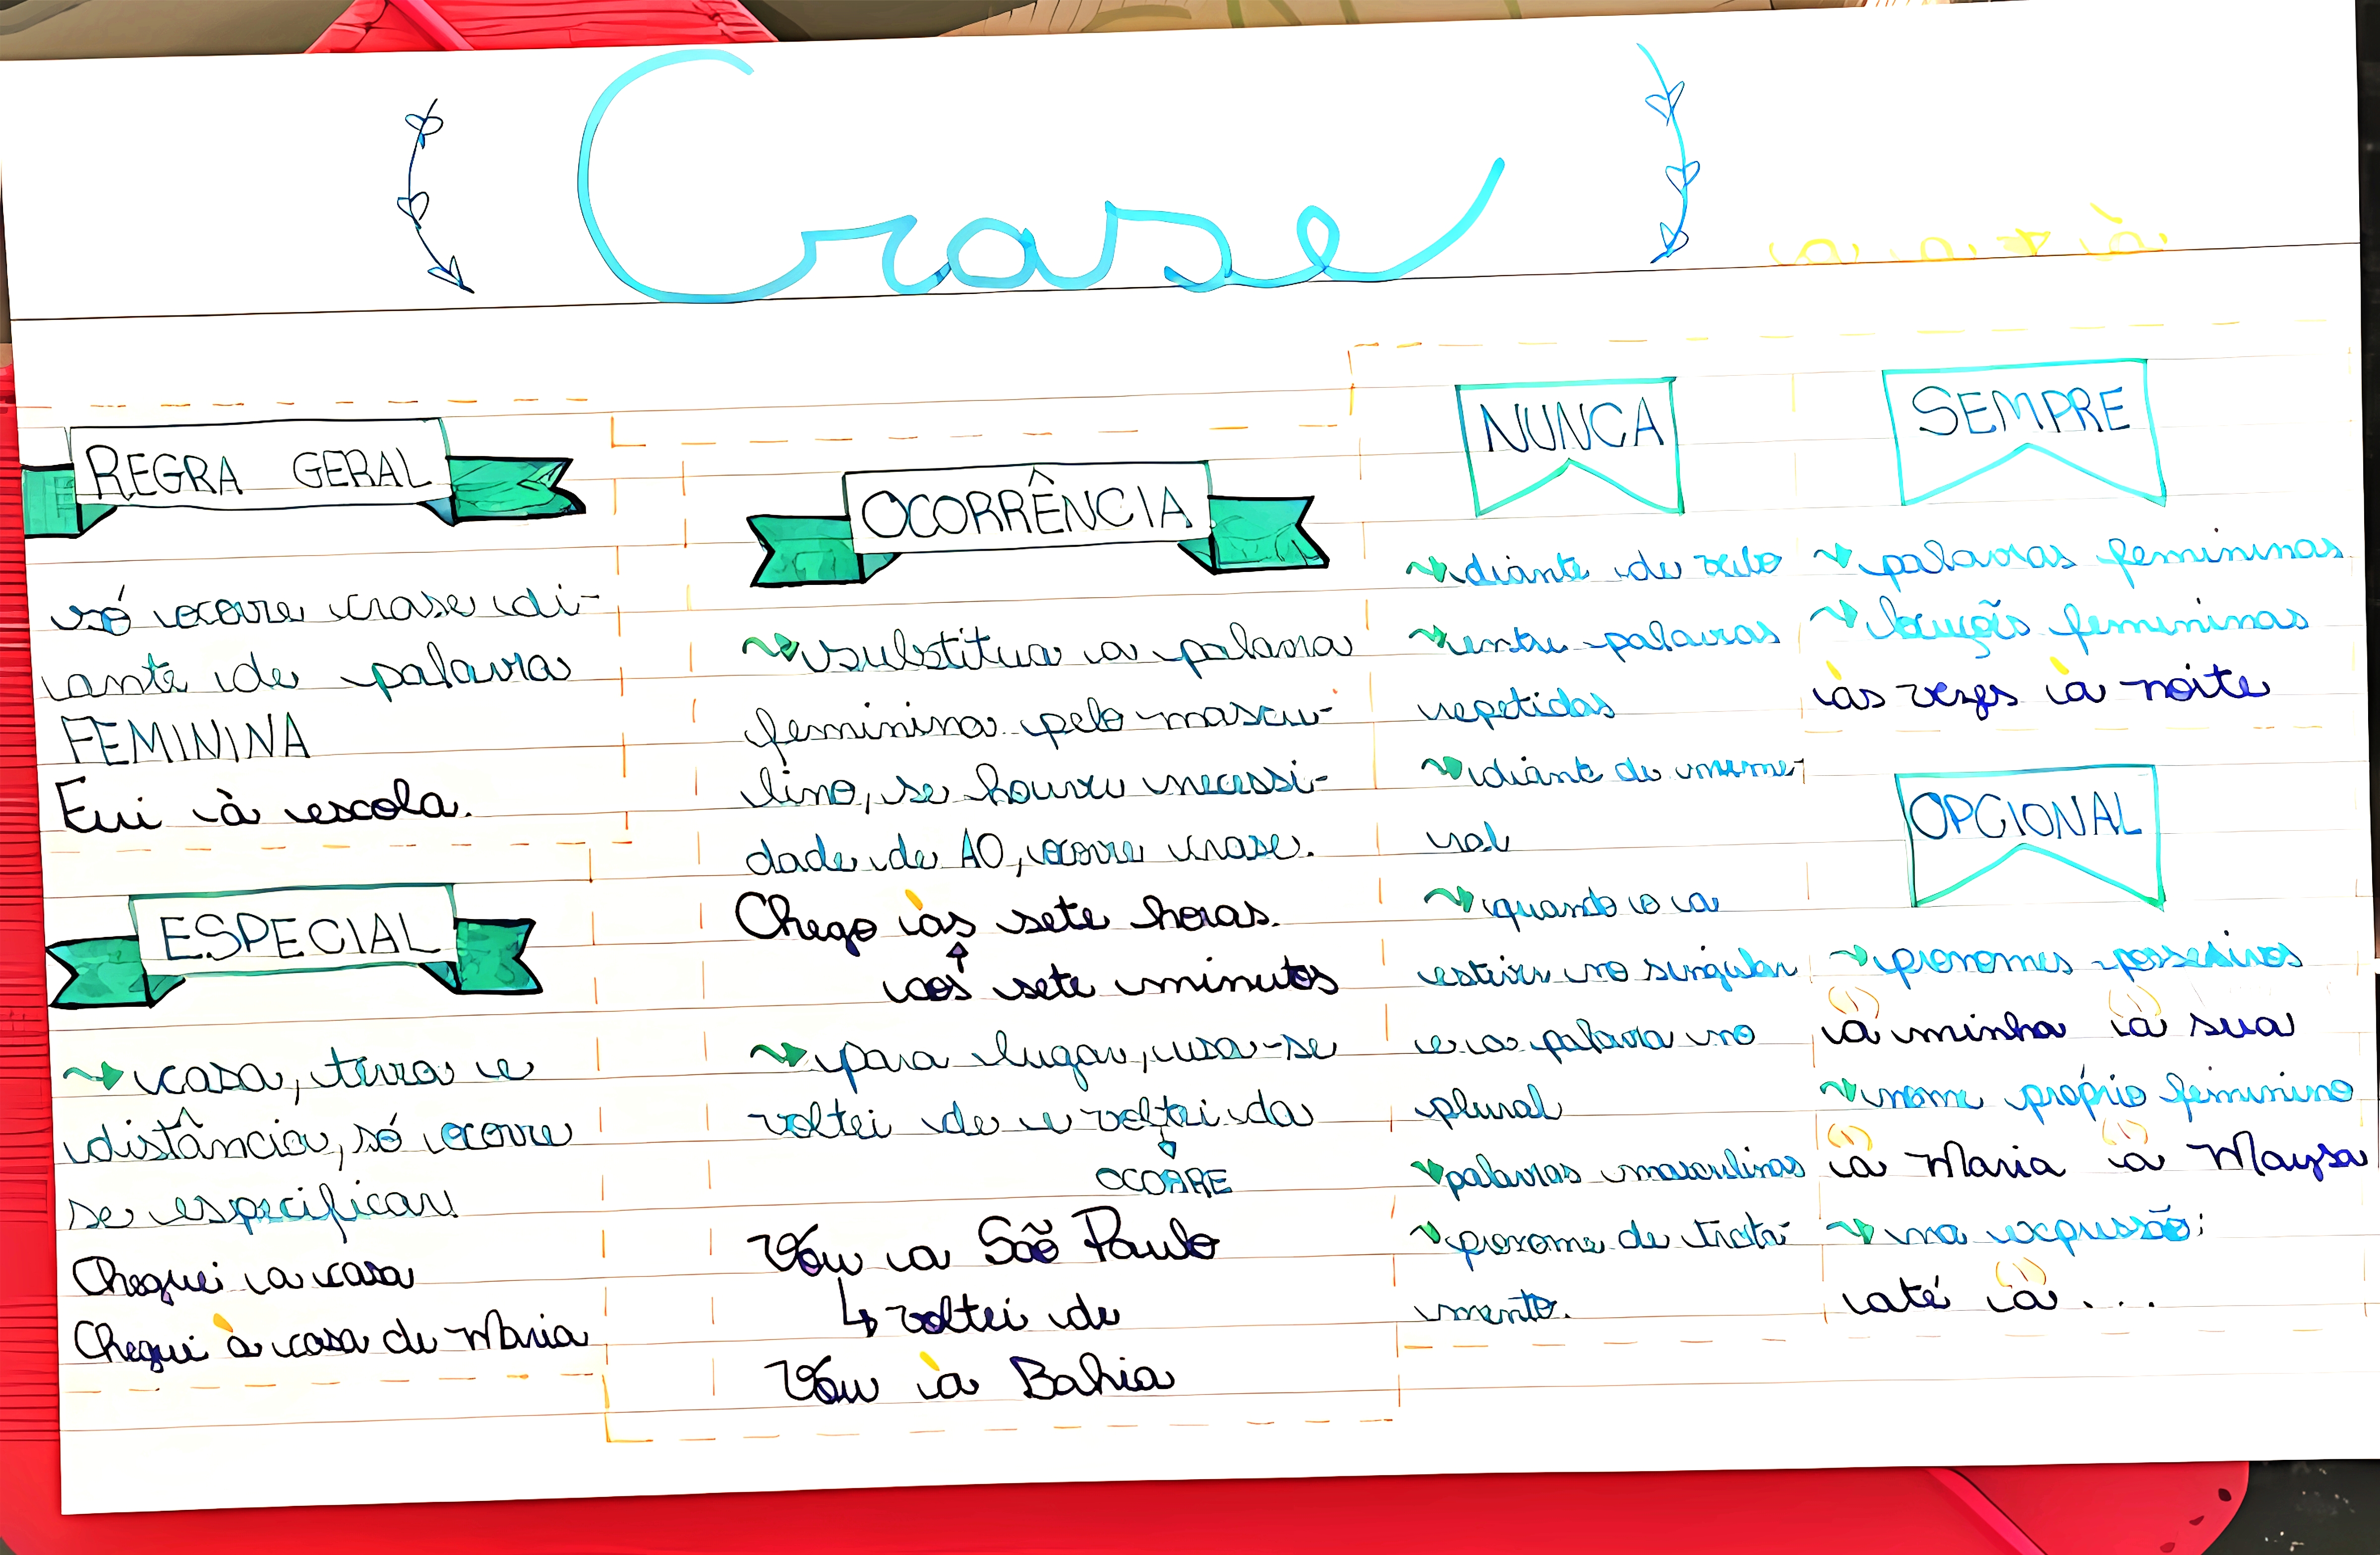 Crase
a a → à
REGRA GERAL
só ocorre crase di-
ante de palavra
FEMININA
Fui à escola.
ESPECIAL
casa, terra e
distância, só ocorre
se especificar!
Cheguei a casa
Cheguei à casa de Maria
OCORRÊNCIA
substitua a palavra
feminina pelo mascu-
lino, se houver necessi-
dade de AO, ocorre crase.
Chego às sete horas.
aos sete minutos
para lugar, usa-se
voltei de e voltei da
OCORRE
Vou a São Paulo
voltei de
Vou à Bahia
NUNCA
diante de verbo
entre palavras
repetidas
diante de nume-
ral
quando o a
estiver no singular
e a palavra no
plural
palavras masculinas
pronome de trata-
mento.
SEMPRE
palavras femininas
locuções femininas
às vezes à noite
OPCIONAL
pronomes possessivos
à minha à sua
nome próprio feminino
à Maria à Maysa
na expressão:
até à...